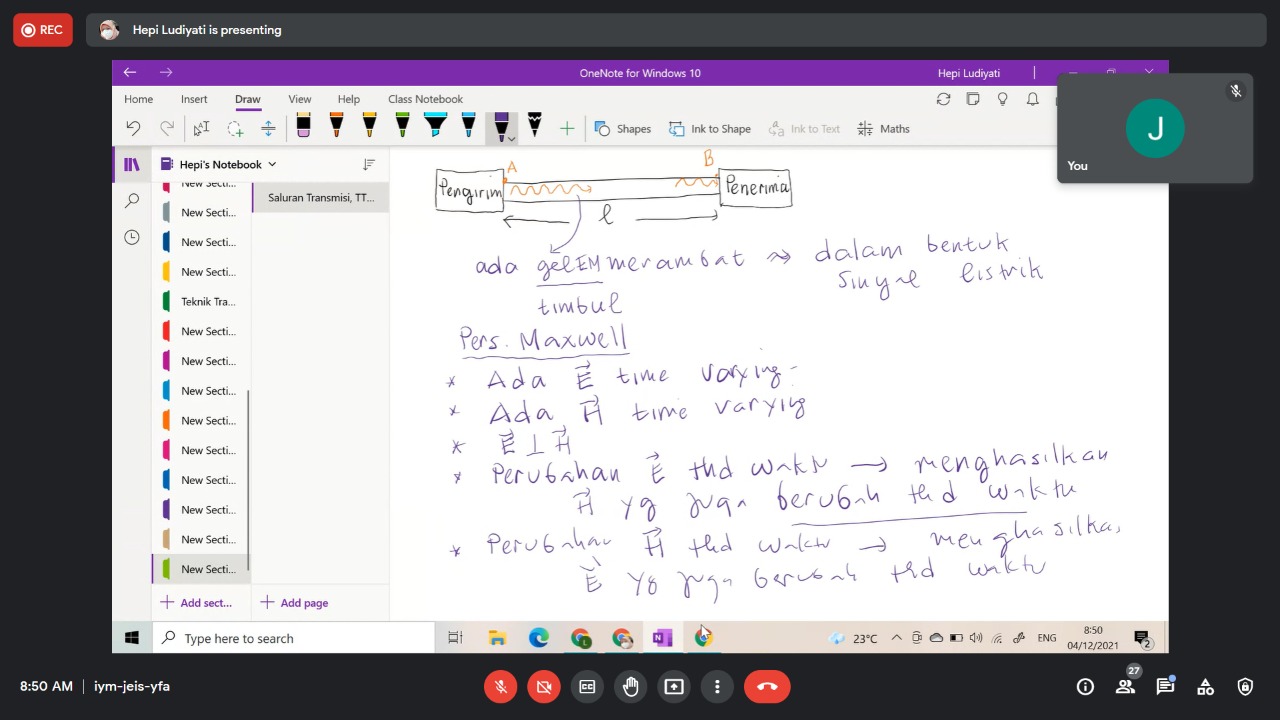 REC
Hepi Ludiyati is presenting
OneNote for Windows 10
Hepi Ludiyati
Home Insert Draw View Help Class Notebook
Shapes Ink to Shape Ink to Text Maths
J
You
Hepi's Notebook
New Secti...
New Secti...
New Secti...
New Secti...
Teknik Tra...
New Secti...
New Secti...
New Secti...
New Secti...
New Secti...
New Secti...
New Secti...
New Secti...
New Secti...
Add sect...
Saluran Transmisi, TT...
Add page
A B
Pengirim Penerima
l
ada gel EM merambat ⇝ dalam bentuk
sinyal listrik
timbul
Pers. Maxwell
* Ada E⃗ time varying
* Ada H⃗ time varying
* E⃗ ⊥ H⃗
* Perubahan E⃗ thd waktu → menghasilkan
H⃗ yg juga berubah thd waktu
* Perubahan H⃗ thd waktu → menghasilka
E⃗ yg juga berubah thd waktu
Type here to search
23°C
ENG
8:50
04/12/2021
2
8:50 AM | iym-jeis-yfa
27